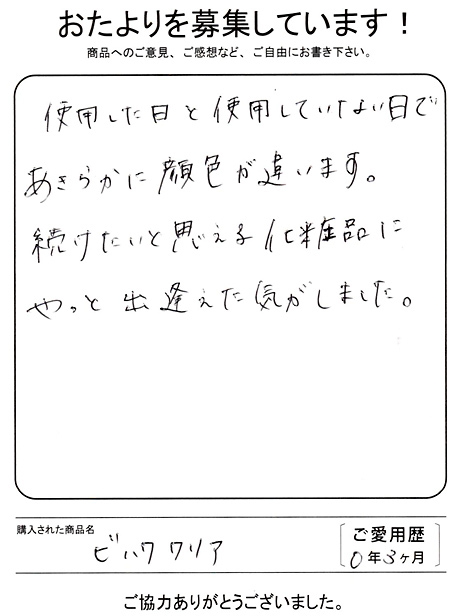 おたよりを募集しています！
商品へのご意見、ご感想など、ご自由にお書き下さい。
使用した日と使用していない日で
あきらかに顔色が違います。
続けたいと思える化粧品に
やっと出逢えた気がしました。
購入された商品名
ビハククリア
ご愛用歴
0年3ヶ月
ご協力ありがとうございました。